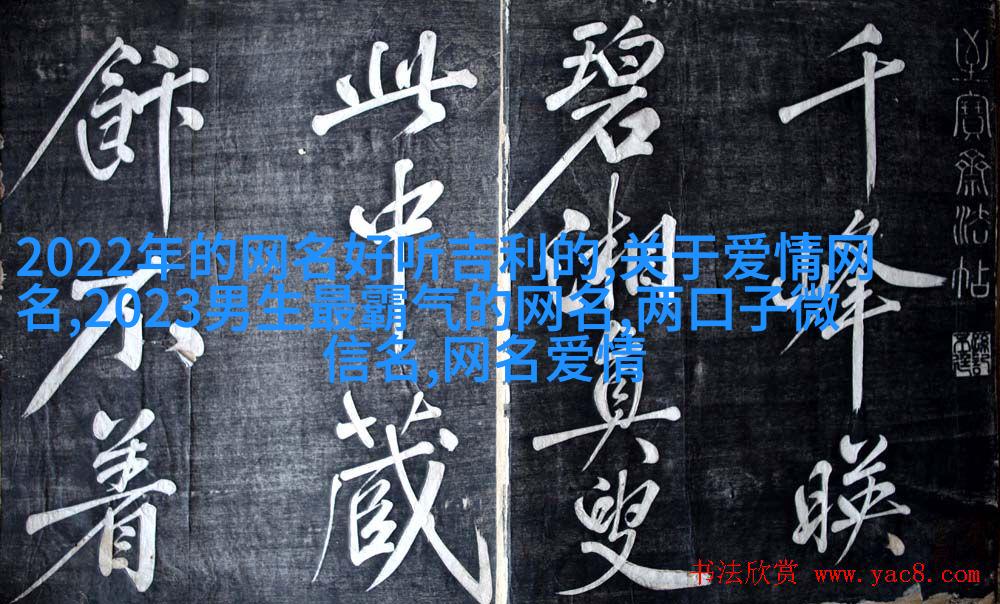 至寶齋法帖
千峰映
碧湘真叟
此中藏
飰不
2022年的网名好听吉利的,关于爱情网
名,2023男生最霸气的网名,两口子微
信名,网名爱情
书法欣赏 www.yac8.com